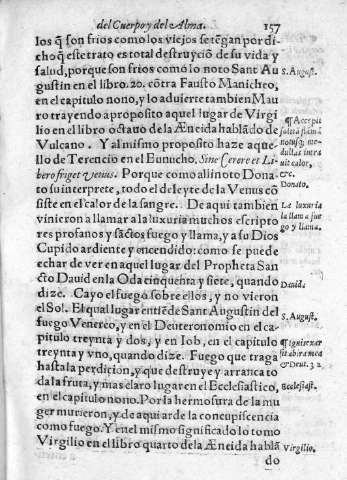 del Cuerpo y del Alma. 157
los q̃ son frios como los viejos se tẽgan por di-
cho q̃ este trato es total destruyciõ de su vida y
salud, porque son frios como lo noto Sant Au
gustin en el libro. 20. cõtra Fausto Manichro,
en el capitulo nono, y lo aduierte tambien Mau
ro trayendo a proposito aquel lugar de Virgi
lio en el libro octauo de la Æneida hablãdo de
Vulcano. Y al mismo proposito haze aque-
llo de Terencio en el Eunucho. Sine Cerere et Li-
bero friget Venus. Porque como alli noto Dona-
to su interprete, todo el deleyte de la Venus cõ
siste en el calor de la sangre. De aqui tambien
vinieron a llamar a la luxuria muchos escripto
res profanos y sãctos fuego y llama, y a su Dios
Cupido ardiente y encendido: como se puede
echar de ver en aquel lugar del Propheta San
cto Dauid en la Oda cinquenta y siete, quando
dize. Cayo el fuego sobre ellos, y no vieron
el Sol. El qual lugar entiẽde Sant Augustin del
fuego Venereo, y en el Deuteronomio en el ca-
pitulo treynta y dos, y en Iob, en el capitulo
treynta y vno, quando dize. Fuego que traga
hasta la perdicion, y que destruye y arranca to
da la fruta, y mas claro lugar en el Ecclesiastico,
en el capitulo nono. Por la hermosura de la mu
ger murieron, y de aqui arde la concupiscencia
como fuego. Y en el mismo significado lo tomo
Virgilio en el libro quarto de la Æneida hablã
do
S. August.
¶ Accepit
solitã flam̃
notusq; me
dullas intra
uit calor,
&c.
Donato.
La luxuria
la llamã fue
go y llama.
Dauid.
S. August.
¶ Ignis exar
& Deut. 32.
Ecclesiast.
Virgilio.